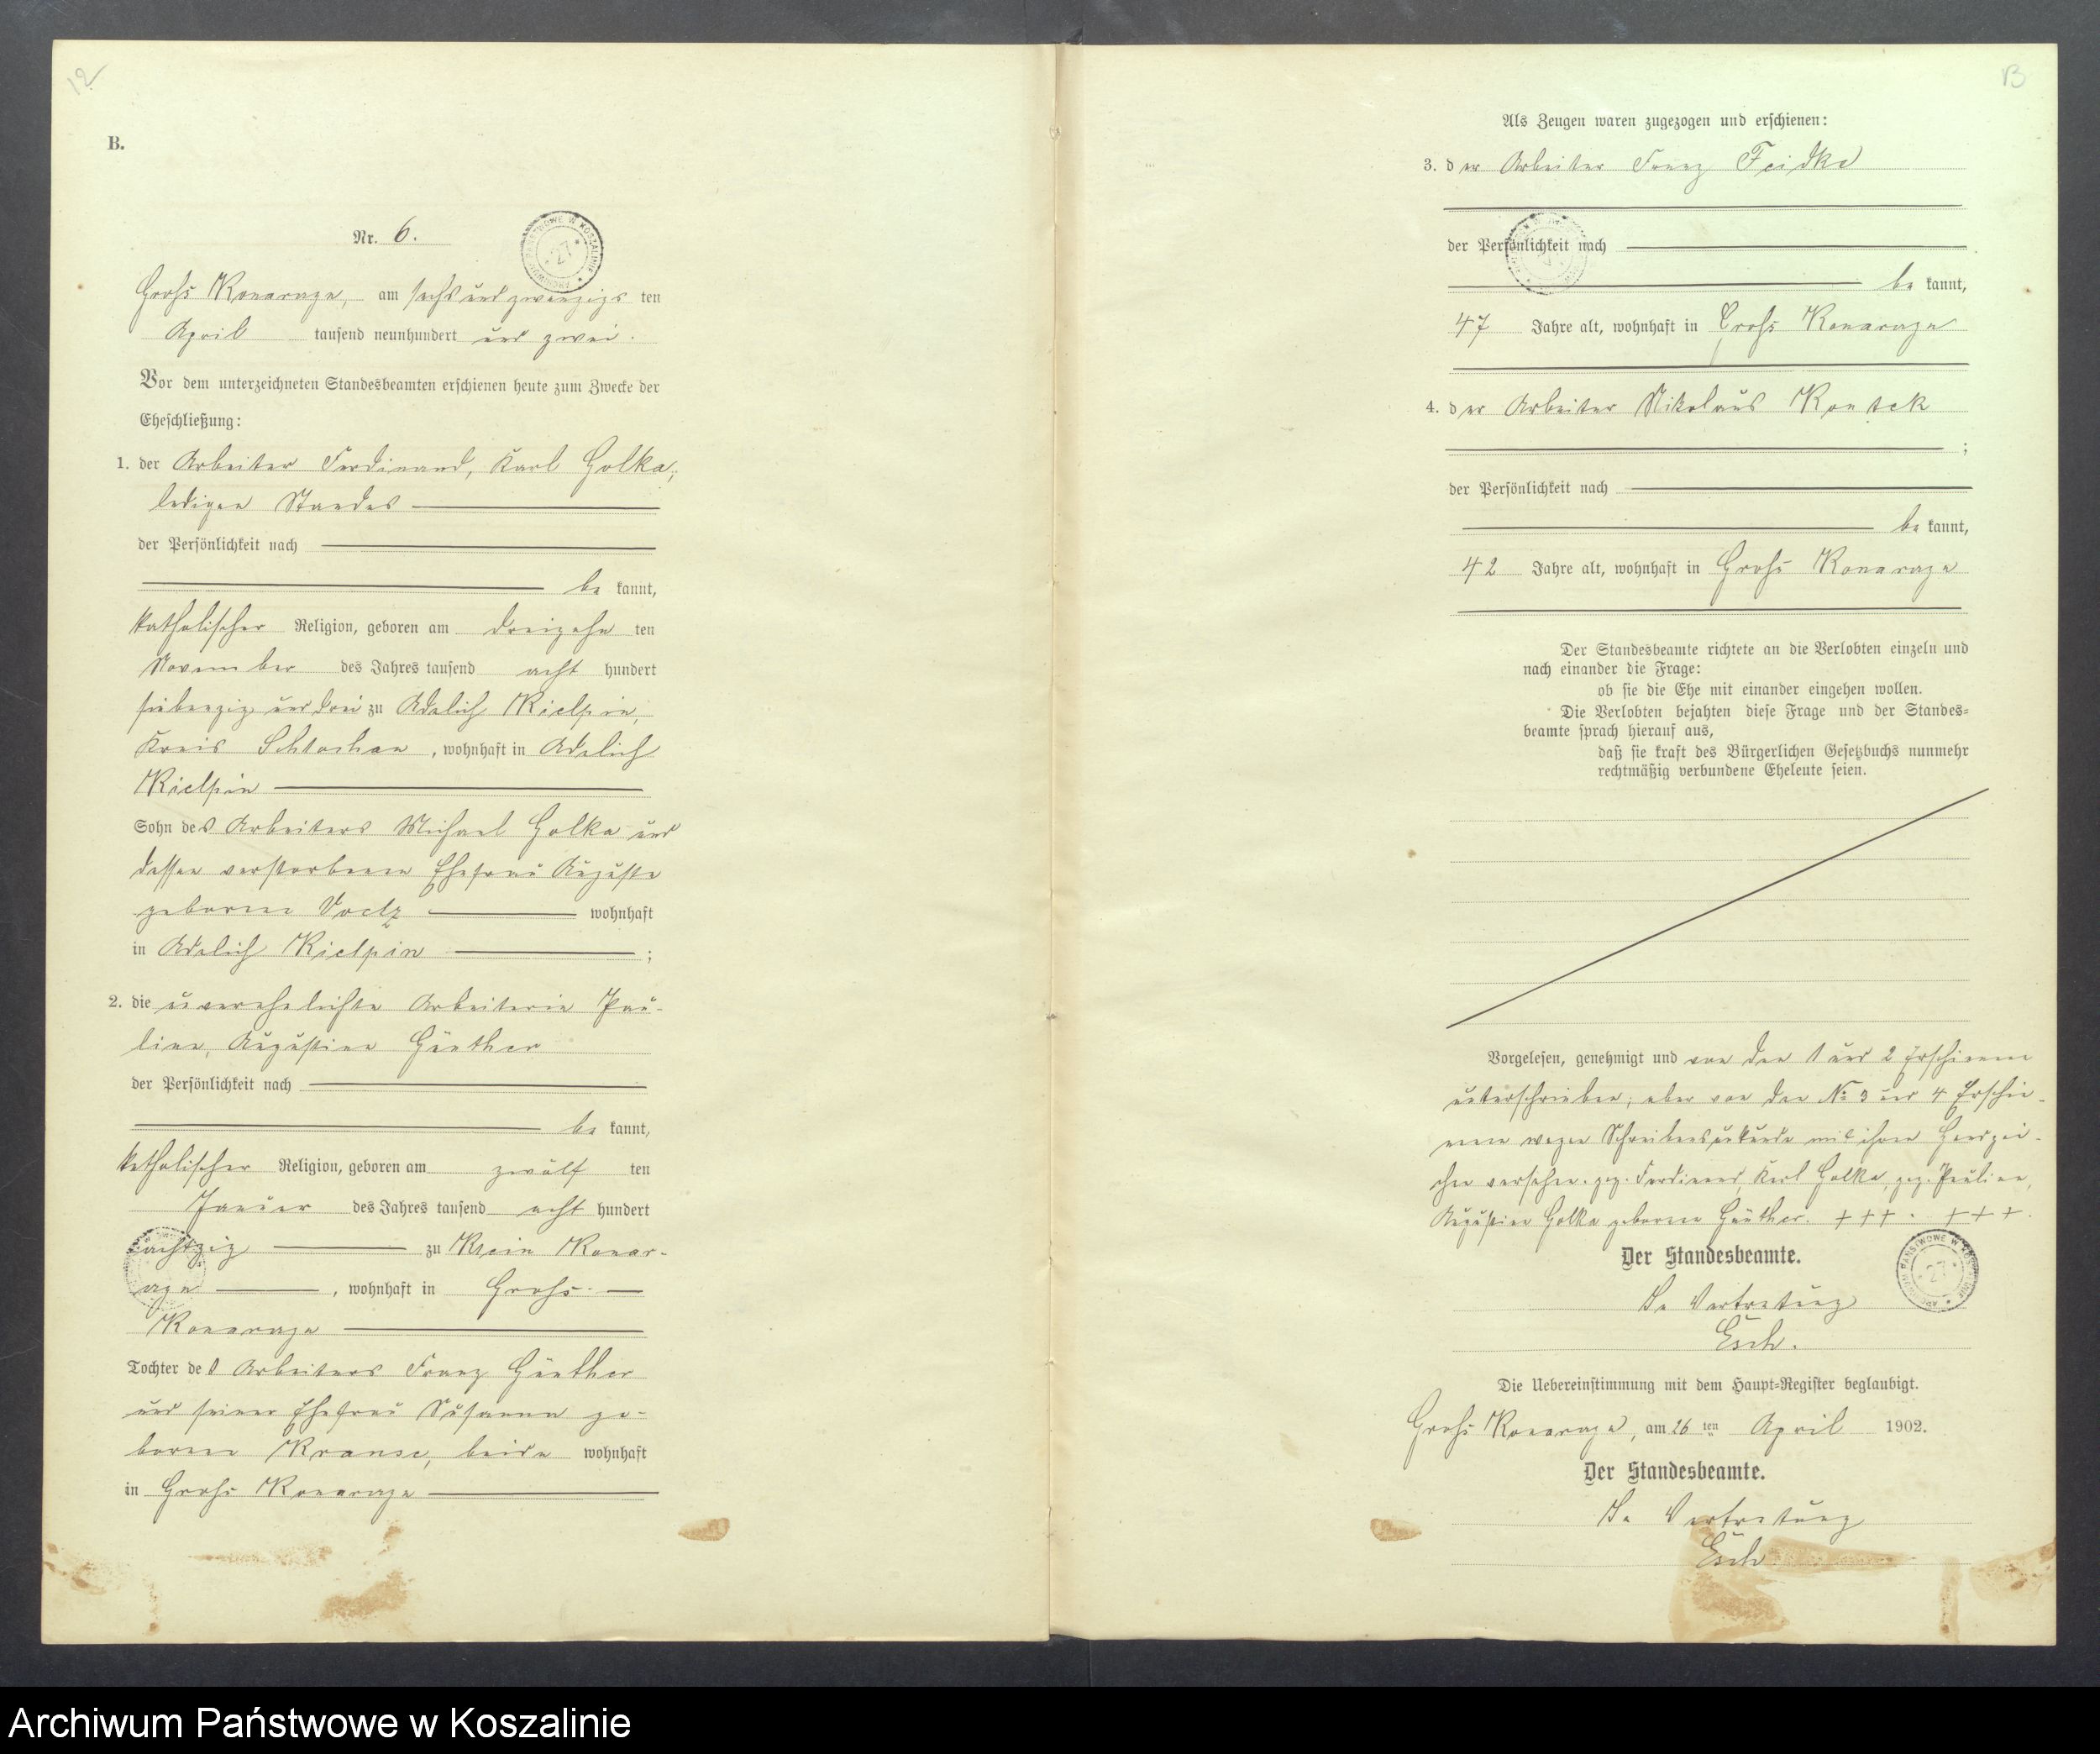 12
B.
Nr. 6.
ARCHIWUM PAŃSTWOWE W KOSZALINIE * 27 *
Groß Konarzyn, am sechs und zwanzigs ten
April tausend neunhundert und zwei.
Vor dem unterzeichneten Standesbeamten erschienen heute zum Zwecke der
Eheschließung:
1. der Arbeiter Ferdinand, Karl Golka,
ledigen Standes
der Persönlichkeit nach
be kannt,
katholischer Religion, geboren am dreizehn ten
November des Jahres tausend acht hundert
siebenzig und drei zu Adelich Kielpin,
Kreis Schlochau, wohnhaft in Adelich
Kielpin
Sohn des Arbeiters Michael Golka und
dessen verstorbenen Ehefrau Auguste
geborene Voelz wohnhaft
in Adelich Kielpin ;
2. die unverehelichte Arbeiterin Pau-
line, Augustine Günther
der Persönlichkeit nach
be kannt,
katholischer Religion, geboren am zwölf ten
Januar des Jahres tausend acht hundert
achtzig zu Klein Konar-
zyn, wohnhaft in Groß
Konarzyn
Tochter des Arbeiters Franz Günther
und seiner Ehefrau Susanna ge-
borene Krause, beide wohnhaft
in Groß Konarzyn
13
Als Zeugen waren zugezogen und erschienen:
3. der Arbeiter Franz Feidke
der Persönlichkeit nach
be kannt,
47 Jahre alt, wohnhaft in Groß Konarzyn
4. der Arbeiter Nikolaus Kontek
;
der Persönlichkeit nach
be kannt,
42 Jahre alt, wohnhaft in Groß Konarzyn
Der Standesbeamte richtete an die Verlobten einzeln und
nach einander die Frage:
ob sie die Ehe mit einander eingehen wollen.
Die Verlobten bejahten diese Frage und der Standes=
beamte sprach hierauf aus,
daß sie kraft des Bürgerlichen Gesetzbuchs nunmehr
rechtmäßig verbundene Eheleute seien.
Vorgelesen, genehmigt und von den 1 und 2 Erschienenen
unterschrieben; aber von den No 3 und 4 Erschie-
nenen wegen Schreibensunkunde mit ihren Handzei-
chen versehen. gez. Ferdinand, Karl Golka, gez. Pauline,
Augustine Golka geborene Günther. +++. +++.
Der Standesbeamte.
In Vertretung
Esch.
ARCHIWUM PAŃSTWOWE W KOSZALINIE * 27 *
Die Uebereinstimmung mit dem Haupt=Register beglaubigt.
Groß Konarzyn, am 26 ten April 1902.
Der Standesbeamte.
In Vertretung
Esch
Archiwum Państwowe w Koszalinie